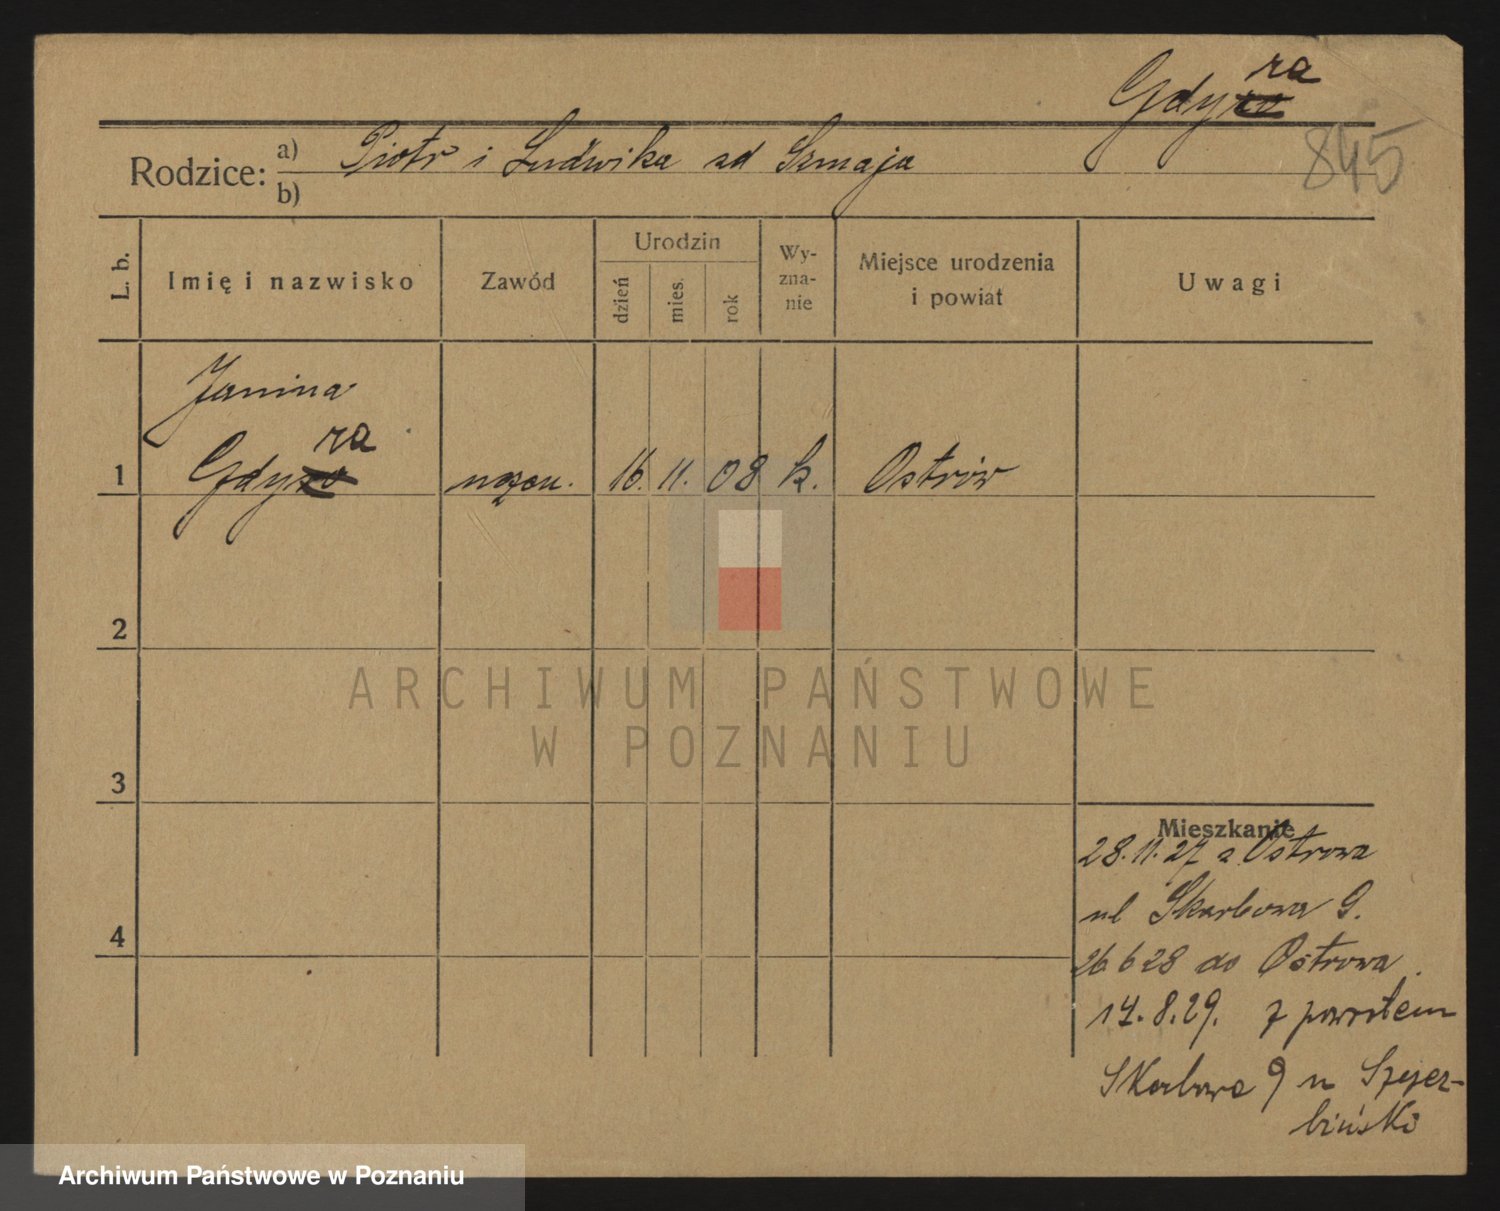 ra
Gdyra
845
Rodzice: a) Piotr i Ludwika zd Szmaja
b)
L. b.
Imię i nazwisko
Zawód
Urodzin
dzień
mies.
rok
Wy-
zna-
nie
Miejsce urodzenia
i powiat
Uwagi
Janina
ra
1 Gdy 16. 11. 08 k. Ostrów
2
3
4
ARCHIWUM PAŃSTWOWE
W POZNANIU
Mieszkanie
28.11.27 z Ostrowa
ul Skarbowa 9.
26 6 28 do Ostrowa.
14.8.29. z powrotem
Skarbowa 9 u
Archiwum Państwowe w Poznaniu